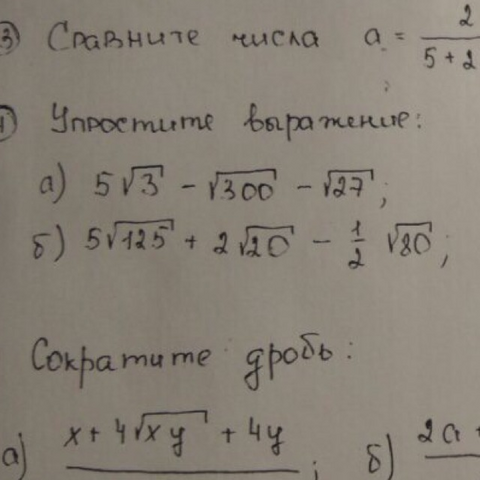 3 Сравните числа a = 2 / 5 + 2
Упростите выражение:
а) 5√3 - √300 - √27;
б) 5√125 + 2√20 - 1/2 √80;
Сократите дробь:
а) x + 4√xy + 4y ; б) 2a +